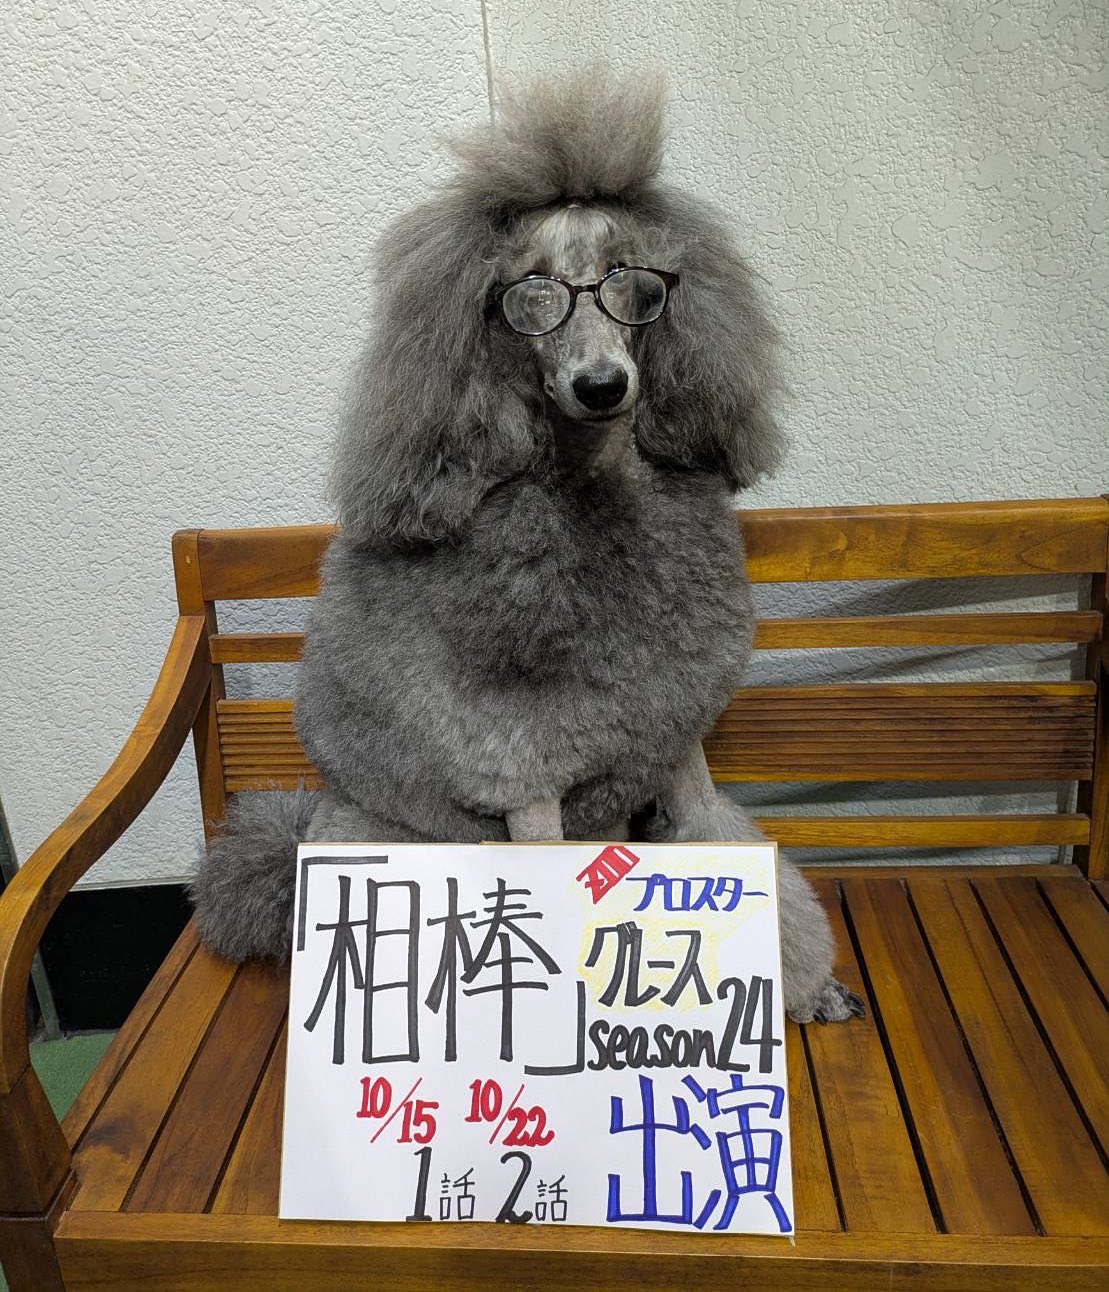 プロスター
グレース
「相棒」season24
10/15 10/22
1話 2話
出演